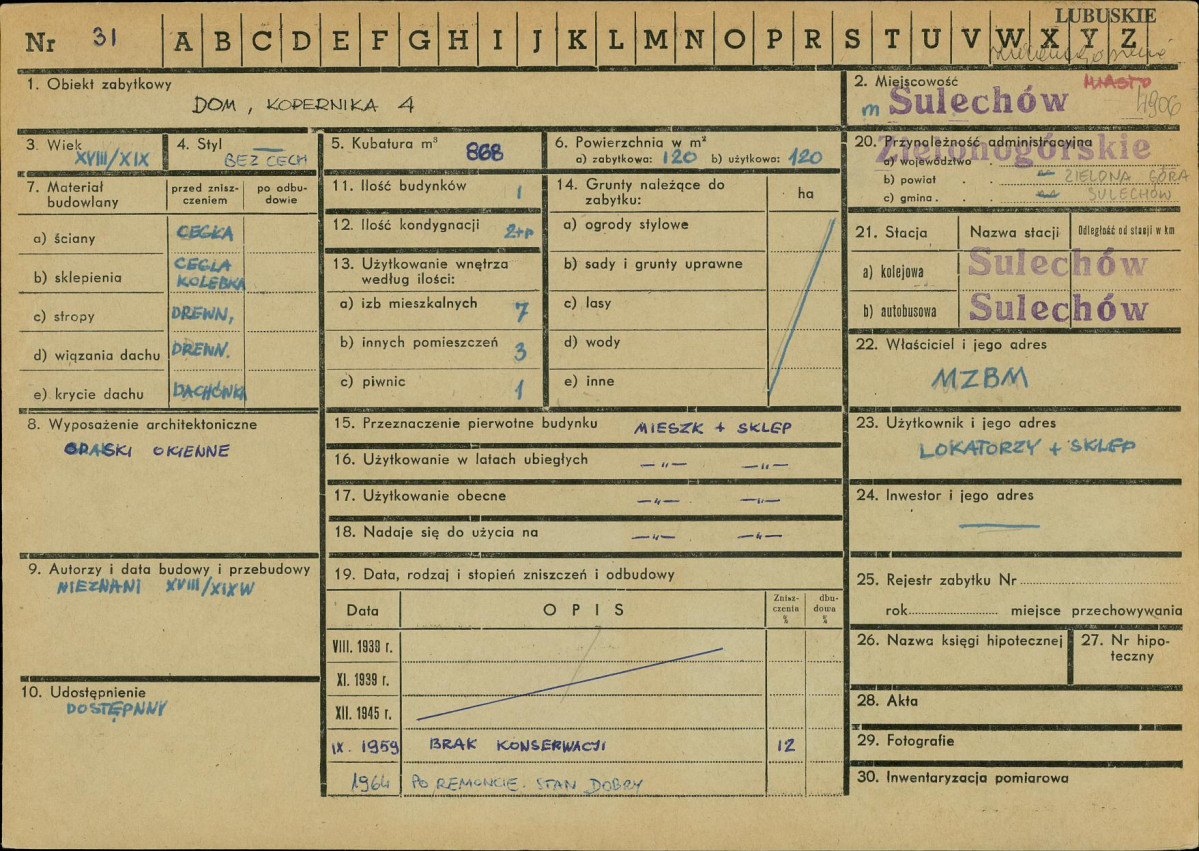 LUBUSKIE
Nr 31 A B C D E F G H I J K L M N O P R S T U V W X Y Z
1. Obiekt zabytkowy
DOM, KOPERNIKA 4
2. Miejscowość MIASTO
m Sulechów 4906
3. Wiek
XVIII/XIX
4. Styl
BEZ CECH
5. Kubatura m³ 868
6. Powierzchnia w m²
a) zabytkowa: 120 b) użytkowa: 120
7. Materiał budowlany
przed zniszczeniem
po odbudowie
a) ściany CEGŁA
b) sklepienia CEGŁA KOLEBKA
c) stropy DREWN,
d) wiązania dachu DREWN.
e) krycie dachu DACHÓWKA
8. Wyposażenie architektoniczne
OPASKI OKIENNE
9. Autorzy i data budowy i przebudowy
NIEZNANI XVIII/XIXW
10. Udostępnienie
DOSTĘPNNY
11. Ilość budynków 1
12. Ilość kondygnacji 2+p
13. Użytkowanie wnętrza
według ilości:
a) izb mieszkalnych 7
b) innych pomieszczeń 3
c) piwnic 1
14. Grunty należące do
zabytku: ha
a) ogrody stylowe
b) sady i grunty uprawne
c) lasy
d) wody
e) inne
15. Przeznaczenie pierwotne budynku MIESZK + SKLEP
16. Użytkowanie w latach ubiegłych —„— —„—
17. Użytkowanie obecne —„— —„—
18. Nadaje się do użycia na —„— —„—
19. Data, rodzaj i stopień zniszczeń i odbudowy
Data OPIS Zniszczenia % dbudowa %
VIII. 1939 r.
XI. 1939 r.
XII. 1945 r.
IX. 1959 BRAK KONSERWACJI 12
1964 PO REMONCIE. STAN DOBRY
20. Przynależność administracyjna
Zielonogórskie
a) województwo
b) powiat ZIELONA GÓRA
c) gmina SULECHÓW
21. Stacja Nazwa stacji Odległość od stacji w km
a) kolejowa Sulechów
b) autobusowa Sulechów
22. Właściciel i jego adres
MZBM
23. Użytkownik i jego adres
LOKATORZY + SKLEP
24. Inwestor i jego adres
25. Rejestr zabytku Nr
rok miejsce przechowywania
26. Nazwa księgi hipotecznej
27. Nr hipoteczny
28. Akta
29. Fotografie
30. Inwentaryzacja pomiarowa